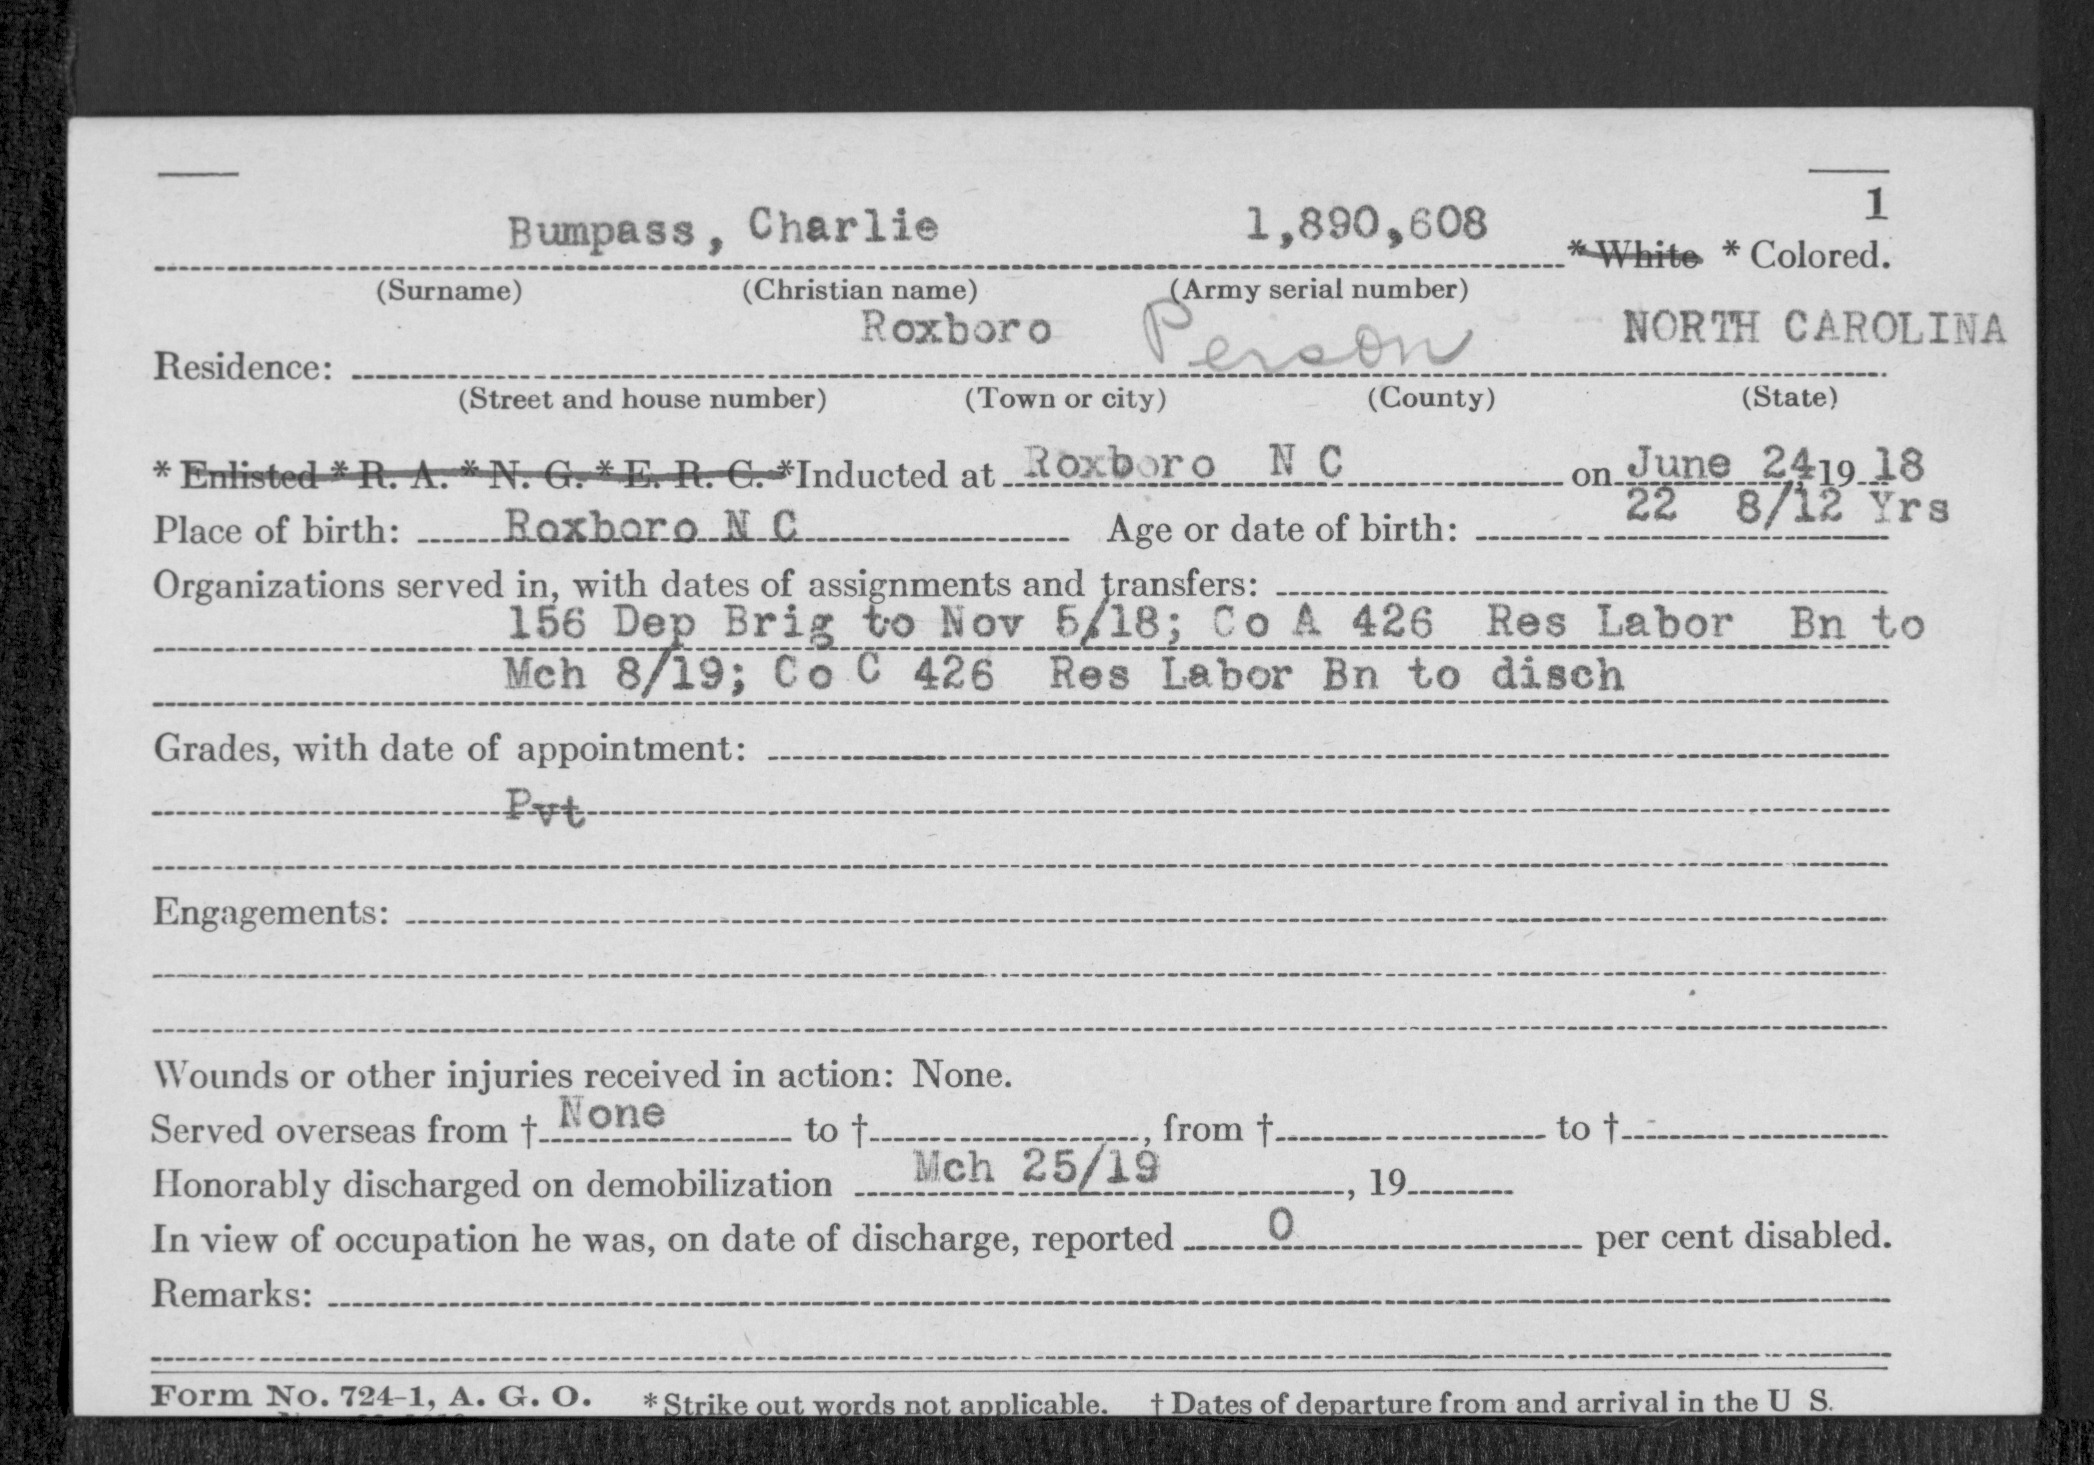 1
Bumpass, Charlie 1,890,608 * White * Colored.
(Surname) (Christian name) (Army serial number)
Roxboro Person NORTH CAROLINA
Residence:
(Street and house number) (Town or city) (County) (State)
* Enlisted * R. A. * N. G. * E. R. C. *Inducted at Roxboro N C on June 24, 19 18
Place of birth: Roxboro N C Age or date of birth: 22 8/12 Yrs
Organizations served in, with dates of assignments and transfers:
156 Dep Brig to Nov 5/18; Co A 426 Res Labor Bn to
Mch 8/19; Co C 426 Res Labor Bn to disch
Grades, with date of appointment:
Pvt
Engagements:
Wounds or other injuries received in action: None.
Served overseas from † None to †, from † to †
Honorably discharged on demobilization Mch 25/19, 19
In view of occupation he was, on date of discharge, reported 0 per cent disabled.
Remarks:
Form No. 724-1, A. G. O. * Strike out words not applicable. † Dates of departure from and arrival in the U S.